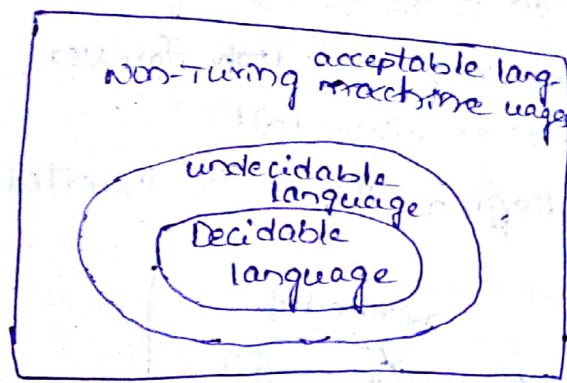 Non-Turing acceptable lang-
machine uages
undecidable
language
Decidable
language